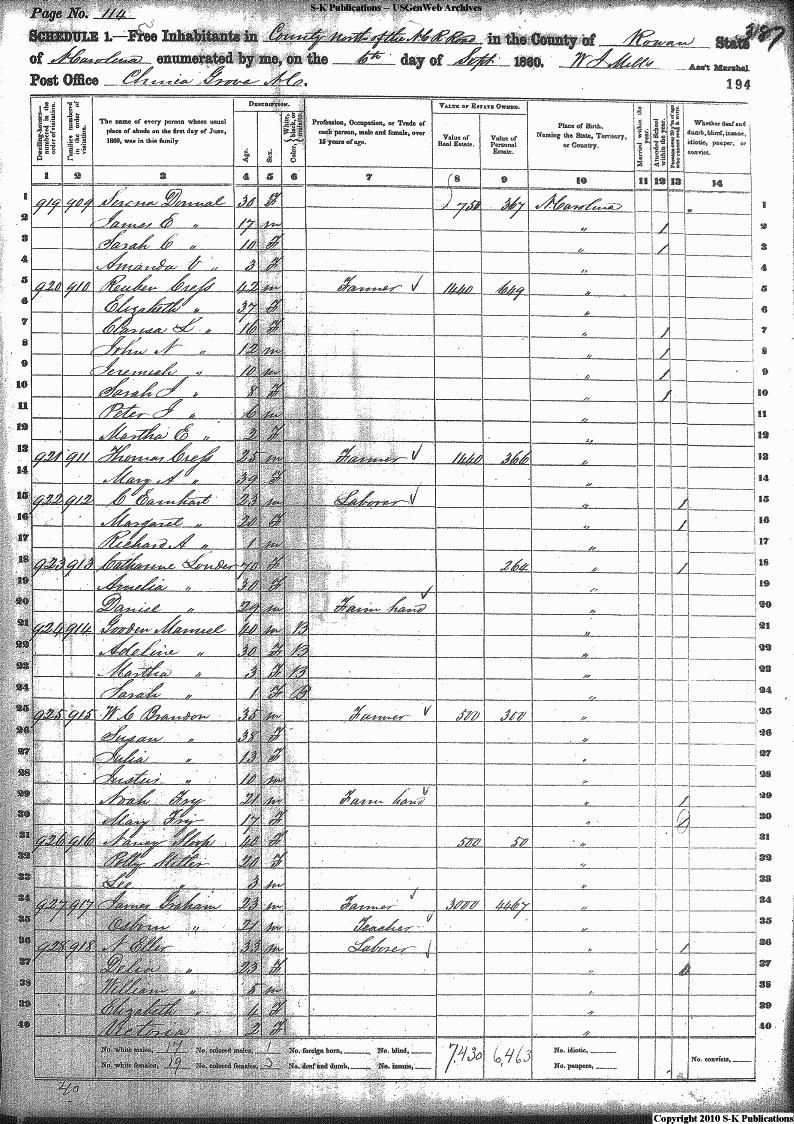 S-K Publications – USGenWeb Archives
Page No. 114
3187
SCHEDULE 1.—Free Inhabitants in County North of the N C R Road in the County of Rowan State
of N Carolina enumerated by me, on the 6th day of Sept 1860. W J Mills Ass't Marshal
Post Office China Grove N C. 194
Dwelling-houses—numbered in the order of visitation. Families numbered in the order of visitation. The name of every person whose usual place of abode on the first day of June, 1860, was in this family DESCRIPTION. Age. Sex. Color, White, black, or mulatto. Profession, Occupation, or Trade of each person, male and female, over 15 years of age. VALUE OF ESTATE OWNED. Value of Real Estate. Value of Personal Estate. Place of Birth, Naming the State, Territory, or Country. Married within the year. Attended School within the year. Persons over 20 y'rs of age who cannot read & write. Whether deaf and dumb, blind, insane, idiotic, pauper, or convict.
1 2 3 4 5 6 7 8 9 10 11 12 13 14
1 919 909 Serena Dormal 30 F 750 367 N Carolina 1
2 James E " 17 m " 1 2
3 Sarah C " 10 F " 1 3
4 Amanda V " 3 F " 4
5 920 910 Reuben Cress 42 m Farmer 1440 649 " 5
6 Elizabeth " 37 F " 6
7 Clarisa L " 16 F " 1 7
8 John N " 12 m " 1 8
9 Jeremiah " 10 m " 1 9
10 Sarah J " 8 F " 1 10
11 Peter J " 6 m " 11
12 Martha E " 2 F " 12
13 921 911 Thomas Cress 25 m Farmer 1440 366 " 13
14 Mary A " 39 F " 14
15 922 912 C Earnhart 23 m Laborer " 1 15
16 Margaret " 20 F " 1 16
17 Richard A " 1 m " 17
18 923 913 Catharine Souder 70 F 264 " 1 18
19 Amelia " 30 F " 19
20 Daniel " 29 m Farm hand " 20
21 924 914 Gooden Manuel 40 m B " 21
22 Adeline " 30 F B " 22
23 Martha " 3 F B " 23
24 Sarah " 1 F B " 24
25 925 915 W C Brandon 35 m Farmer 500 300 " 25
26 Susan " 38 F " 26
27 Julia " 13 F " 27
28 Justus " 10 m " 28
29 Noah Fry 21 m Farm hand " 1 29
30 Mary Fry 17 F " 30
31 926 916 Nancy Sloop 40 F 500 50 " 31
32 Polly Stiller 20 F " 32
33 Lee " 3 m " 33
34 927 917 James Graham 23 m Farmer 3000 4467 " 34
35 Osborn " 21 m Teacher " 35
36 928 918 N Eller 33 m Laborer " 1 36
37 Delia " 23 F " 37
38 William " 5 m " 38
39 Elizabeth " 4 F " 39
40 Victoria 2 F " 40
No. white males, 17 No. colored males, 1 No. foreign born, No. blind, 7,430 6,463 No. idiotic,
No. white females, 19 No. colored females, 3 No. deaf and dumb, No. insane, No. paupers, No. convicts,
40
Copyright 2010 S-K Publications